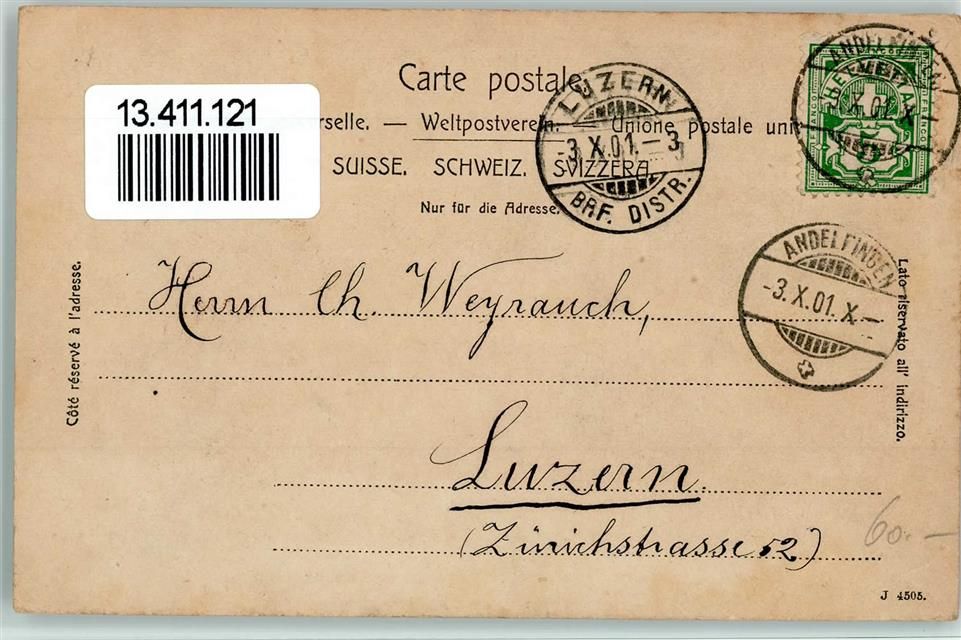 Carte postale
13.411.121
rselle. — Weltpostverein. — Unione postale uni
SUISSE. SCHWEIZ. SVIZZERA.
Nur für die Adresse.
LUZERN
-3.X.01.-3
BRF. DISTR.
ANDELFINGEN
X.01. X
FRANCO
5
ANDELFINGEN
-3.X.01. X.-
Côté réservé à l'adresse.
Lato riservato all' indirizzo.
Herrn Ch. Weyrauch,
Luzern.
(Zürichstrasse 52)
60.-
J 4505.